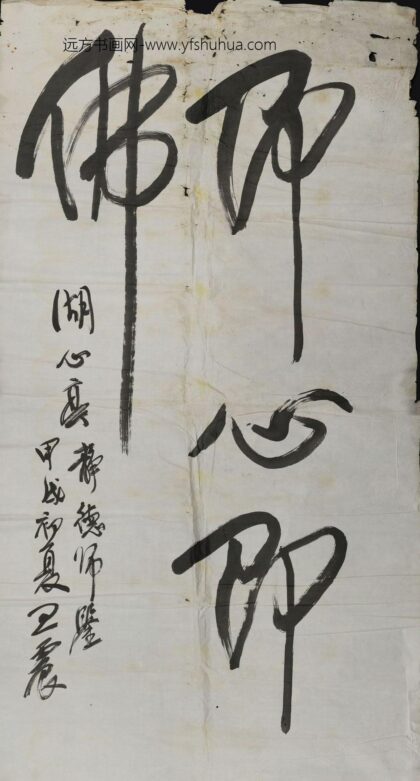 远方书画网-www.yfshuhua.com
即心即
佛
湖心亭
靜德師鑒
甲戌初夏王震